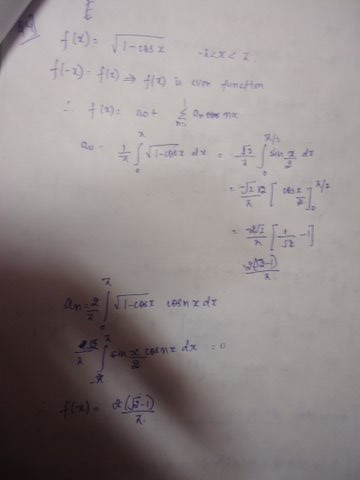 f(x) = √1-cosx -π<x<π
f(-x) = f(x) ⇒ f(x) is even function
∴ f(x) = a0+ Σ n=1 an cos nx
a0 = 1/π ∫0^π √1-cosx dx = √2/π ∫0^π/2 sin x/2 dx
= -√2×2/π [cos x/2]0^π/2
= -2√2/π [1/√2 - 1]
2(√2-1)/π
an = 2/π ∫0^π √1-cosx cosnx dx
2√2/π ∫-π^π sin x/2 cosnx dx = 0
∴ f(x) = 2(√2-1)/π